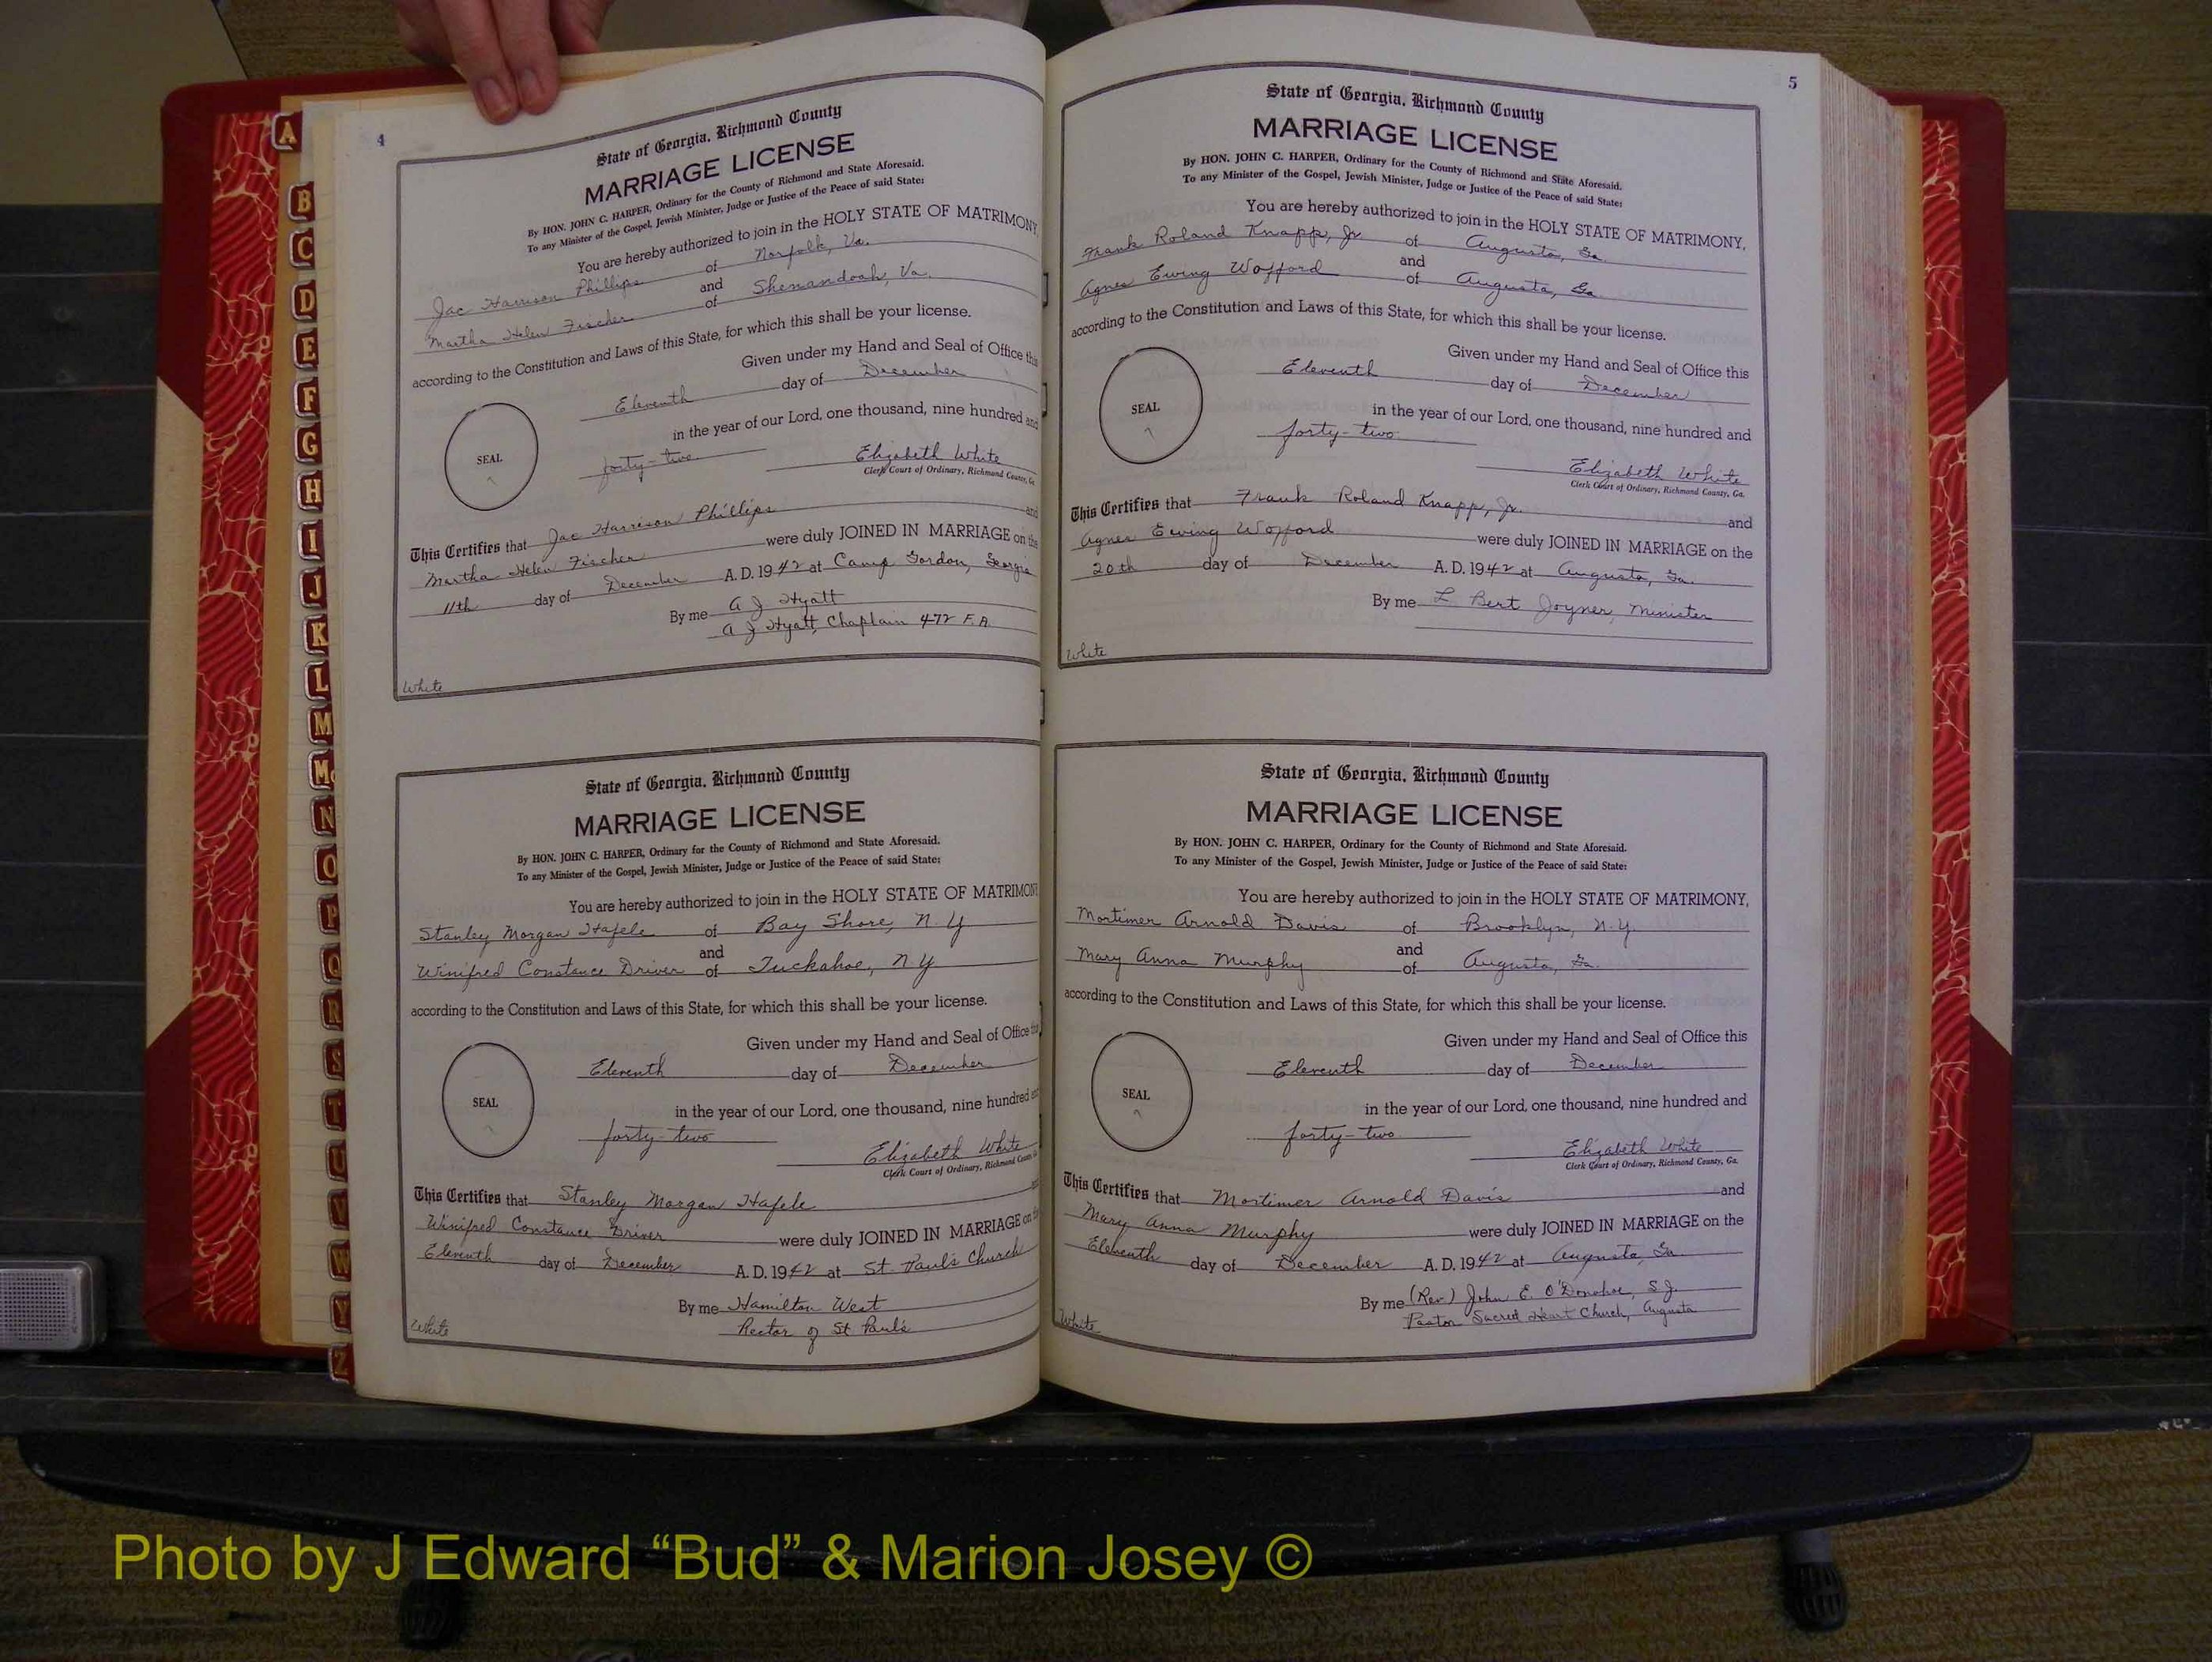 4
State of Georgia, Richmond County
MARRIAGE LICENSE
By HON. JOHN C. HARPER, Ordinary for the County of Richmond and State Aforesaid.
To any Minister of the Gospel, Jewish Minister, Judge or Justice of the Peace of said State:
You are hereby authorized to join in the HOLY STATE OF MATRIMONY,
Jac Harrison Phillips of Norfolk, Va.
and
Martha Helen Fischer of Shenandoah, Va.
according to the Constitution and Laws of this State, for which this shall be your license.
Given under my Hand and Seal of Office this
Eleventh day of December
in the year of our Lord, one thousand, nine hundred and
SEAL
forty-two
Elizabeth White
Clerk Court of Ordinary, Richmond County, Ga
This Certifies that Jac Harrison Phillips and
Martha Helen Fischer were duly JOINED IN MARRIAGE on the
11th day of December A. D. 1942 at Camp Gordon, Georgia
By me A J Hyatt
A J Hyatt, Chaplain 472 F.A.
White
State of Georgia, Richmond County
MARRIAGE LICENSE
By HON. JOHN C. HARPER, Ordinary for the County of Richmond and State Aforesaid.
To any Minister of the Gospel, Jewish Minister, Judge or Justice of the Peace of said State:
You are hereby authorized to join in the HOLY STATE OF MATRIMONY
Stanley Morgan Hafele of Bay Shore, N. Y
and
Winifred Constance Driver of Tuckahoe, N Y
according to the Constitution and Laws of this State, for which this shall be your license.
Given under my Hand and Seal of Office this
Eleventh day of December
SEAL
in the year of our Lord, one thousand, nine hundred and
forty-two
Elizabeth White
Clerk Court of Ordinary, Richmond County
This Certifies that Stanley Morgan Hafele and
Winifred Constance Driver were duly JOINED IN MARRIAGE on the
Eleventh day of December A. D. 1942 at St. Paul's Church
By me Hamilton West
Rector of St Paul's
White
5
State of Georgia, Richmond County
MARRIAGE LICENSE
By HON. JOHN C. HARPER, Ordinary for the County of Richmond and State Aforesaid.
To any Minister of the Gospel, Jewish Minister, Judge or Justice of the Peace of said State:
You are hereby authorized to join in the HOLY STATE OF MATRIMONY,
Frank Roland Knapp, Jr. of Augusta, Ga.
and
Agnes Ewing Wofford of Augusta, Ga.
according to the Constitution and Laws of this State, for which this shall be your license.
Given under my Hand and Seal of Office this
Eleventh day of December
SEAL
in the year of our Lord, one thousand, nine hundred and
forty-two
Elizabeth White
Clerk Court of Ordinary, Richmond County, Ga.
This Certifies that Frank Roland Knapp, Jr. and
Agnes Ewing Wofford were duly JOINED IN MARRIAGE on the
20th day of December A. D. 1942 at Augusta, Ga.
By me L. Bert Joyner, Minister
White
State of Georgia, Richmond County
MARRIAGE LICENSE
By HON. JOHN C. HARPER, Ordinary for the County of Richmond and State Aforesaid.
To any Minister of the Gospel, Jewish Minister, Judge or Justice of the Peace of said State:
You are hereby authorized to join in the HOLY STATE OF MATRIMONY,
Mortimer Arnold Davis of Brooklyn, N.Y.
and
Mary Anna Murphy of Augusta, Ga.
according to the Constitution and Laws of this State, for which this shall be your license.
Given under my Hand and Seal of Office this
Eleventh day of December
SEAL
in the year of our Lord, one thousand, nine hundred and
forty-two
Elizabeth White
Clerk Court of Ordinary, Richmond County, Ga.
This Certifies that Mortimer Arnold Davis and
Mary Anna Murphy were duly JOINED IN MARRIAGE on the
Eleventh day of December A. D. 1942 at Augusta, Ga.
By me (Rev.) John E. O'Donohoe, S.J.
Pastor Sacred Heart Church, Augusta
White
A
B
C
D
E
F
G
H
I
J
K
L
M
Mc
N
O
P
Q
R
S
T
U
V
W
Y
Z
Photo by J Edward “Bud” & Marion Josey ©